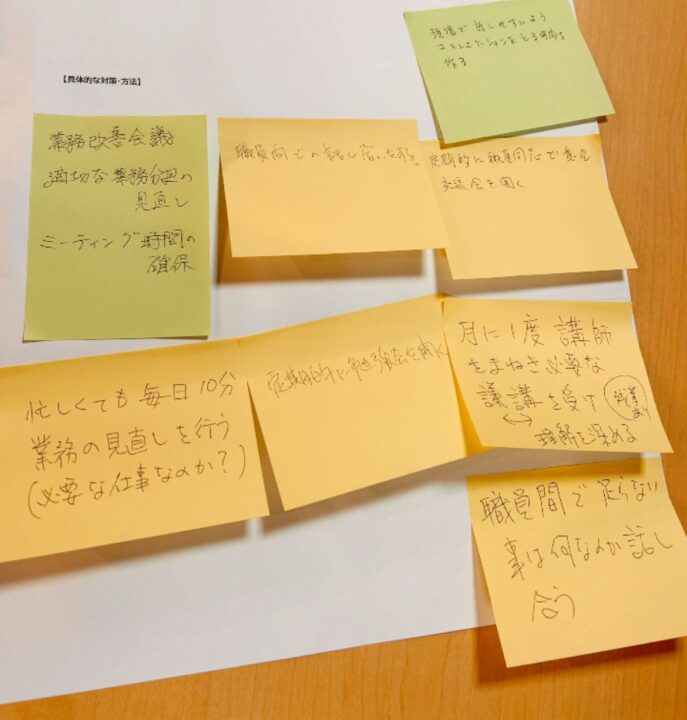 【具体的な対策・方法】
現場で話しやすいよう
コミュニケーションをとる時間を
作る
業務改善会議
適切な業務分担の
見直し
ミーティング時間の
確保
職員同士の話し合いをする。
定期的に職員同士で意見
交流会を開く
忙しくても毎日10分
業務の見直しを行う
(必要な仕事なのか?)
定期的に勉強会を開く
月に1度 講師
をまねき必要な
議講を受け
理解を深める
職員間で足らない
事は何なのか話し
合う